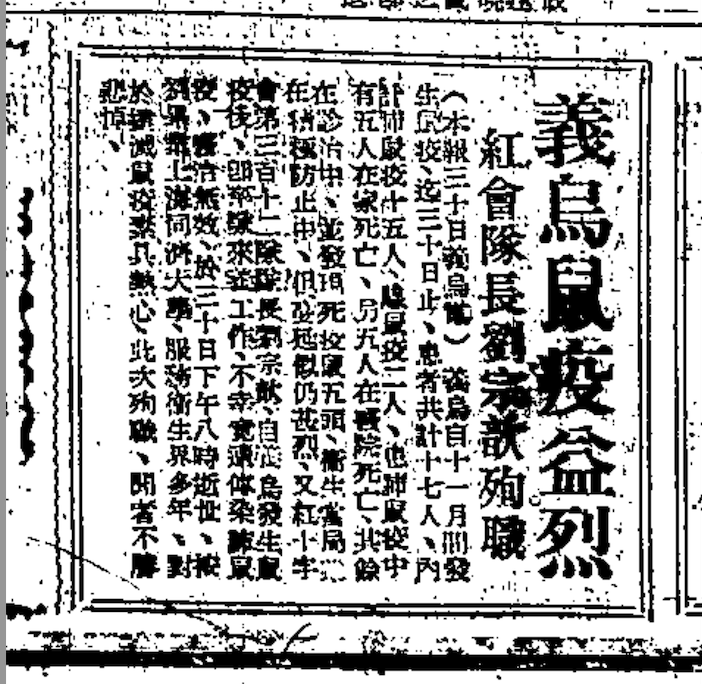 義烏鼠疫益烈
紅會隊長劉宗歆殉職
（本報三十日義烏電）義烏自十一月間發
生鼠疫、迄三十日止、患者共計十七人、內
計肺鼠疫十五人、腺鼠疫二人、患肺鼠疫中
有五人在家死亡、另五人在醫院死亡、其餘
在診治中、並發現死疫鼠五頭、衛生當局
在積極防止中、但發延似仍甚烈、又紅十字
會第三百十二隊隊長劉宗歆、自義烏發生鼠
疫後、即率隊來義工作、不幸竟遭傳染肺鼠
疫、醫治無效、於三十日下午八時逝世、按
劉畢業上海同濟大學、服務衛生界多年、對
於撲滅鼠疫素具熱心、此次殉職、聞者不勝
悲悼、